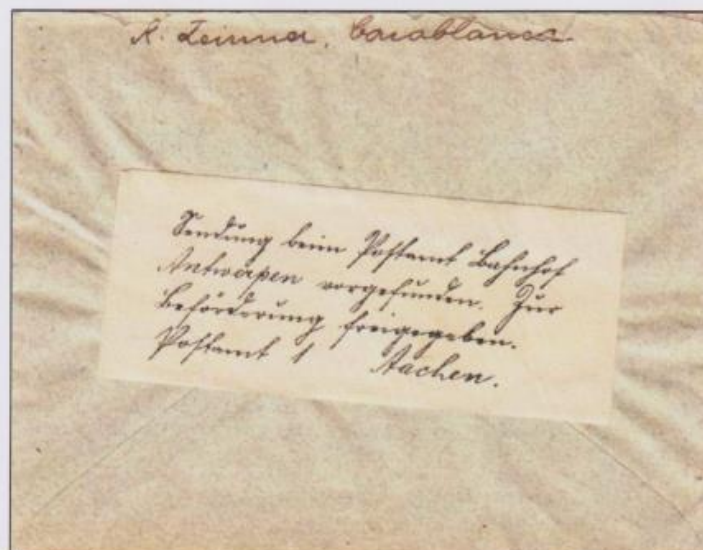 Casablanca
Sendung beim Postamt Bahnhof
Antwerpen vorgefunden. Zur
Beförderung freigegeben.
Postamt 1 Aachen.